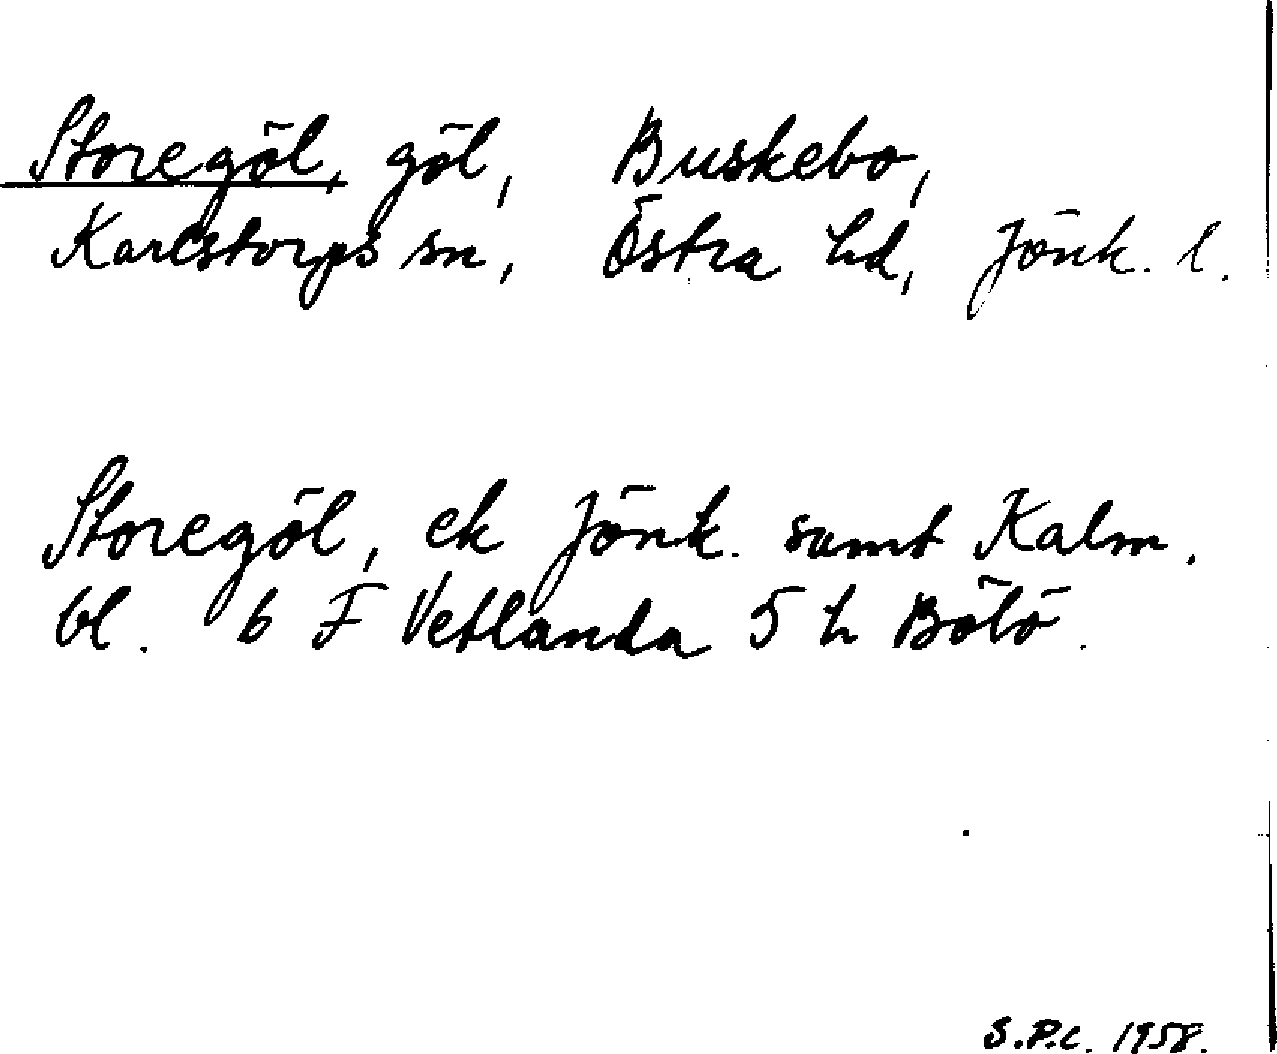 Storegöl, göl, Buskebo,
Karlstorps sn, Östra hd, Jönk. l.
Storegöl, ek Jönk. samt Kalm.
bl. 6 F Vetlanda 5 h Bölö.
S.P.C. 1958.